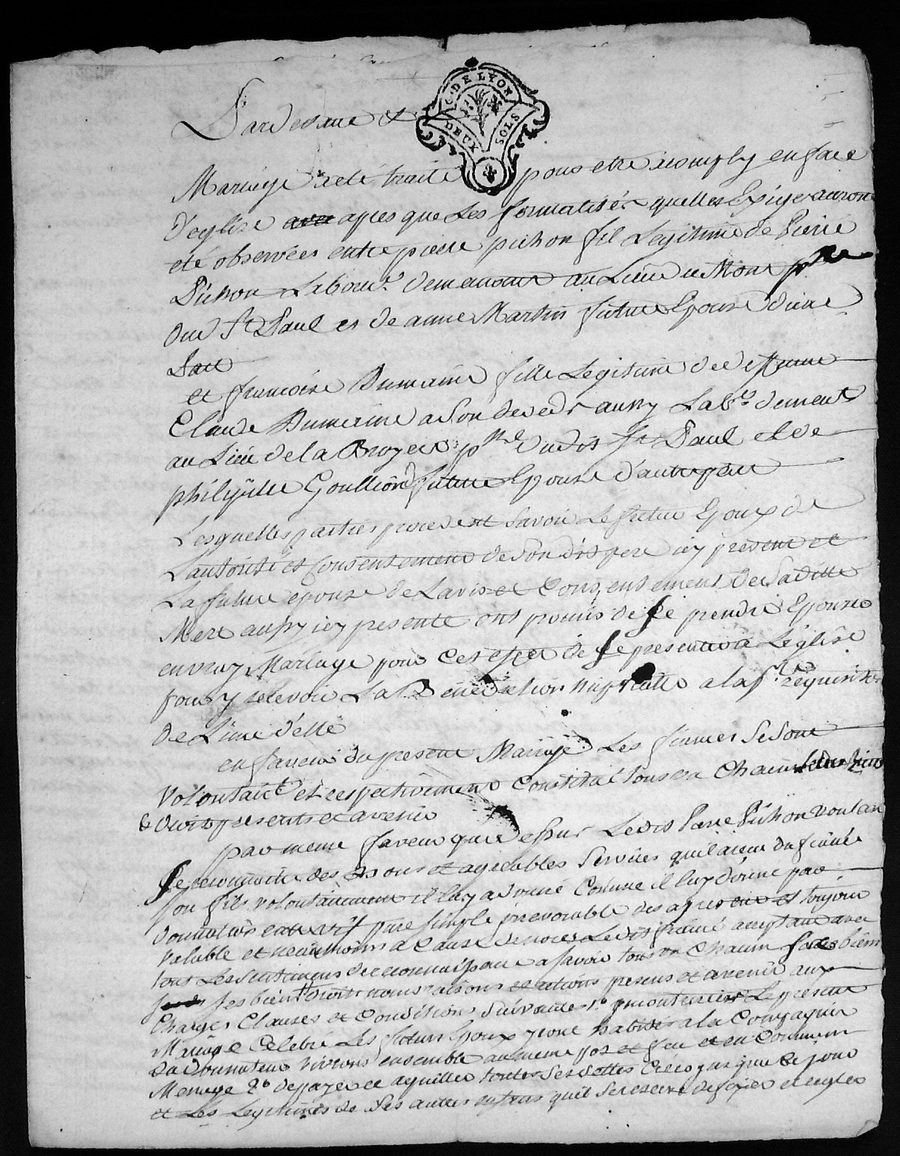 G. DE LYON
DEUX SOLS
Pardevant et
Mariage a été traité pour etre accomply en face
d'eglise avec apres que Les formalités quelles Exige auront
été observées entre pierre pichon fil Legitime de Pierre
Pichon Labour.r demeurant au Lieu de Mont psse
dud St Paul et de anne Martin futur Epoux d'une
Part
et francoise Dumaine fille Legitime de deffunt
Claude Dumaine a Son deceds aussy Lab.r demeut
au Lieu de la Bruyere psse dudit St Paul et de
philiberte Goullion future Epouse d'autre part
Lesquelles parties procedent Savoir Le futur Epoux de
L'autorité et Consentement de Son dit pere icy present et
La future epouse de L'avis et Consentement de Sa ditte
Mere aussy icy presente ont promis de Se prendre Epouse
en vray Mariage pour Cet effet de Se presenter a L'église
pour y recevoir La Benediction nuptialle a la p.re requisition
de L'une d'elle
en faveur du present Mariage Les fiancés Se Sont
Volontair.t et respectivement Constitué tous un Chacun Leurs biens
& droits presents et avenir
par meme faveur que dessus Ledit Pierre Pichon voulant
Se reconnoitre des bons et agreables Services qu'il a reçu du fiancé
Son fils volontairement il luy a donné Comme il luy donne par
donnation entre vif pure Simple irrevocable des apresent et toujour
valable et neanmoins a Cause de noces Ledit fiancé acceptant avec
tous Les Sentimens de reconnoissance a Savoir tous un Chacun Ses biens
Ses biens droits noms raisons et actions presens et avenir aux
Charges Clauses et Conditions Suivantes 1° qu'incontinent Le present
Mariage Celebré Les futurs Epoux iront habiter a la Compagnie
du donnateur vivront ensemble au meme pot et feu et en Commun
Menage 2° de payer et aquitter toutes Ses dettes Crées jusque Ce jour
et Les Legitimes de Ses autres enfans qu'il Se reserve de fixer et regler